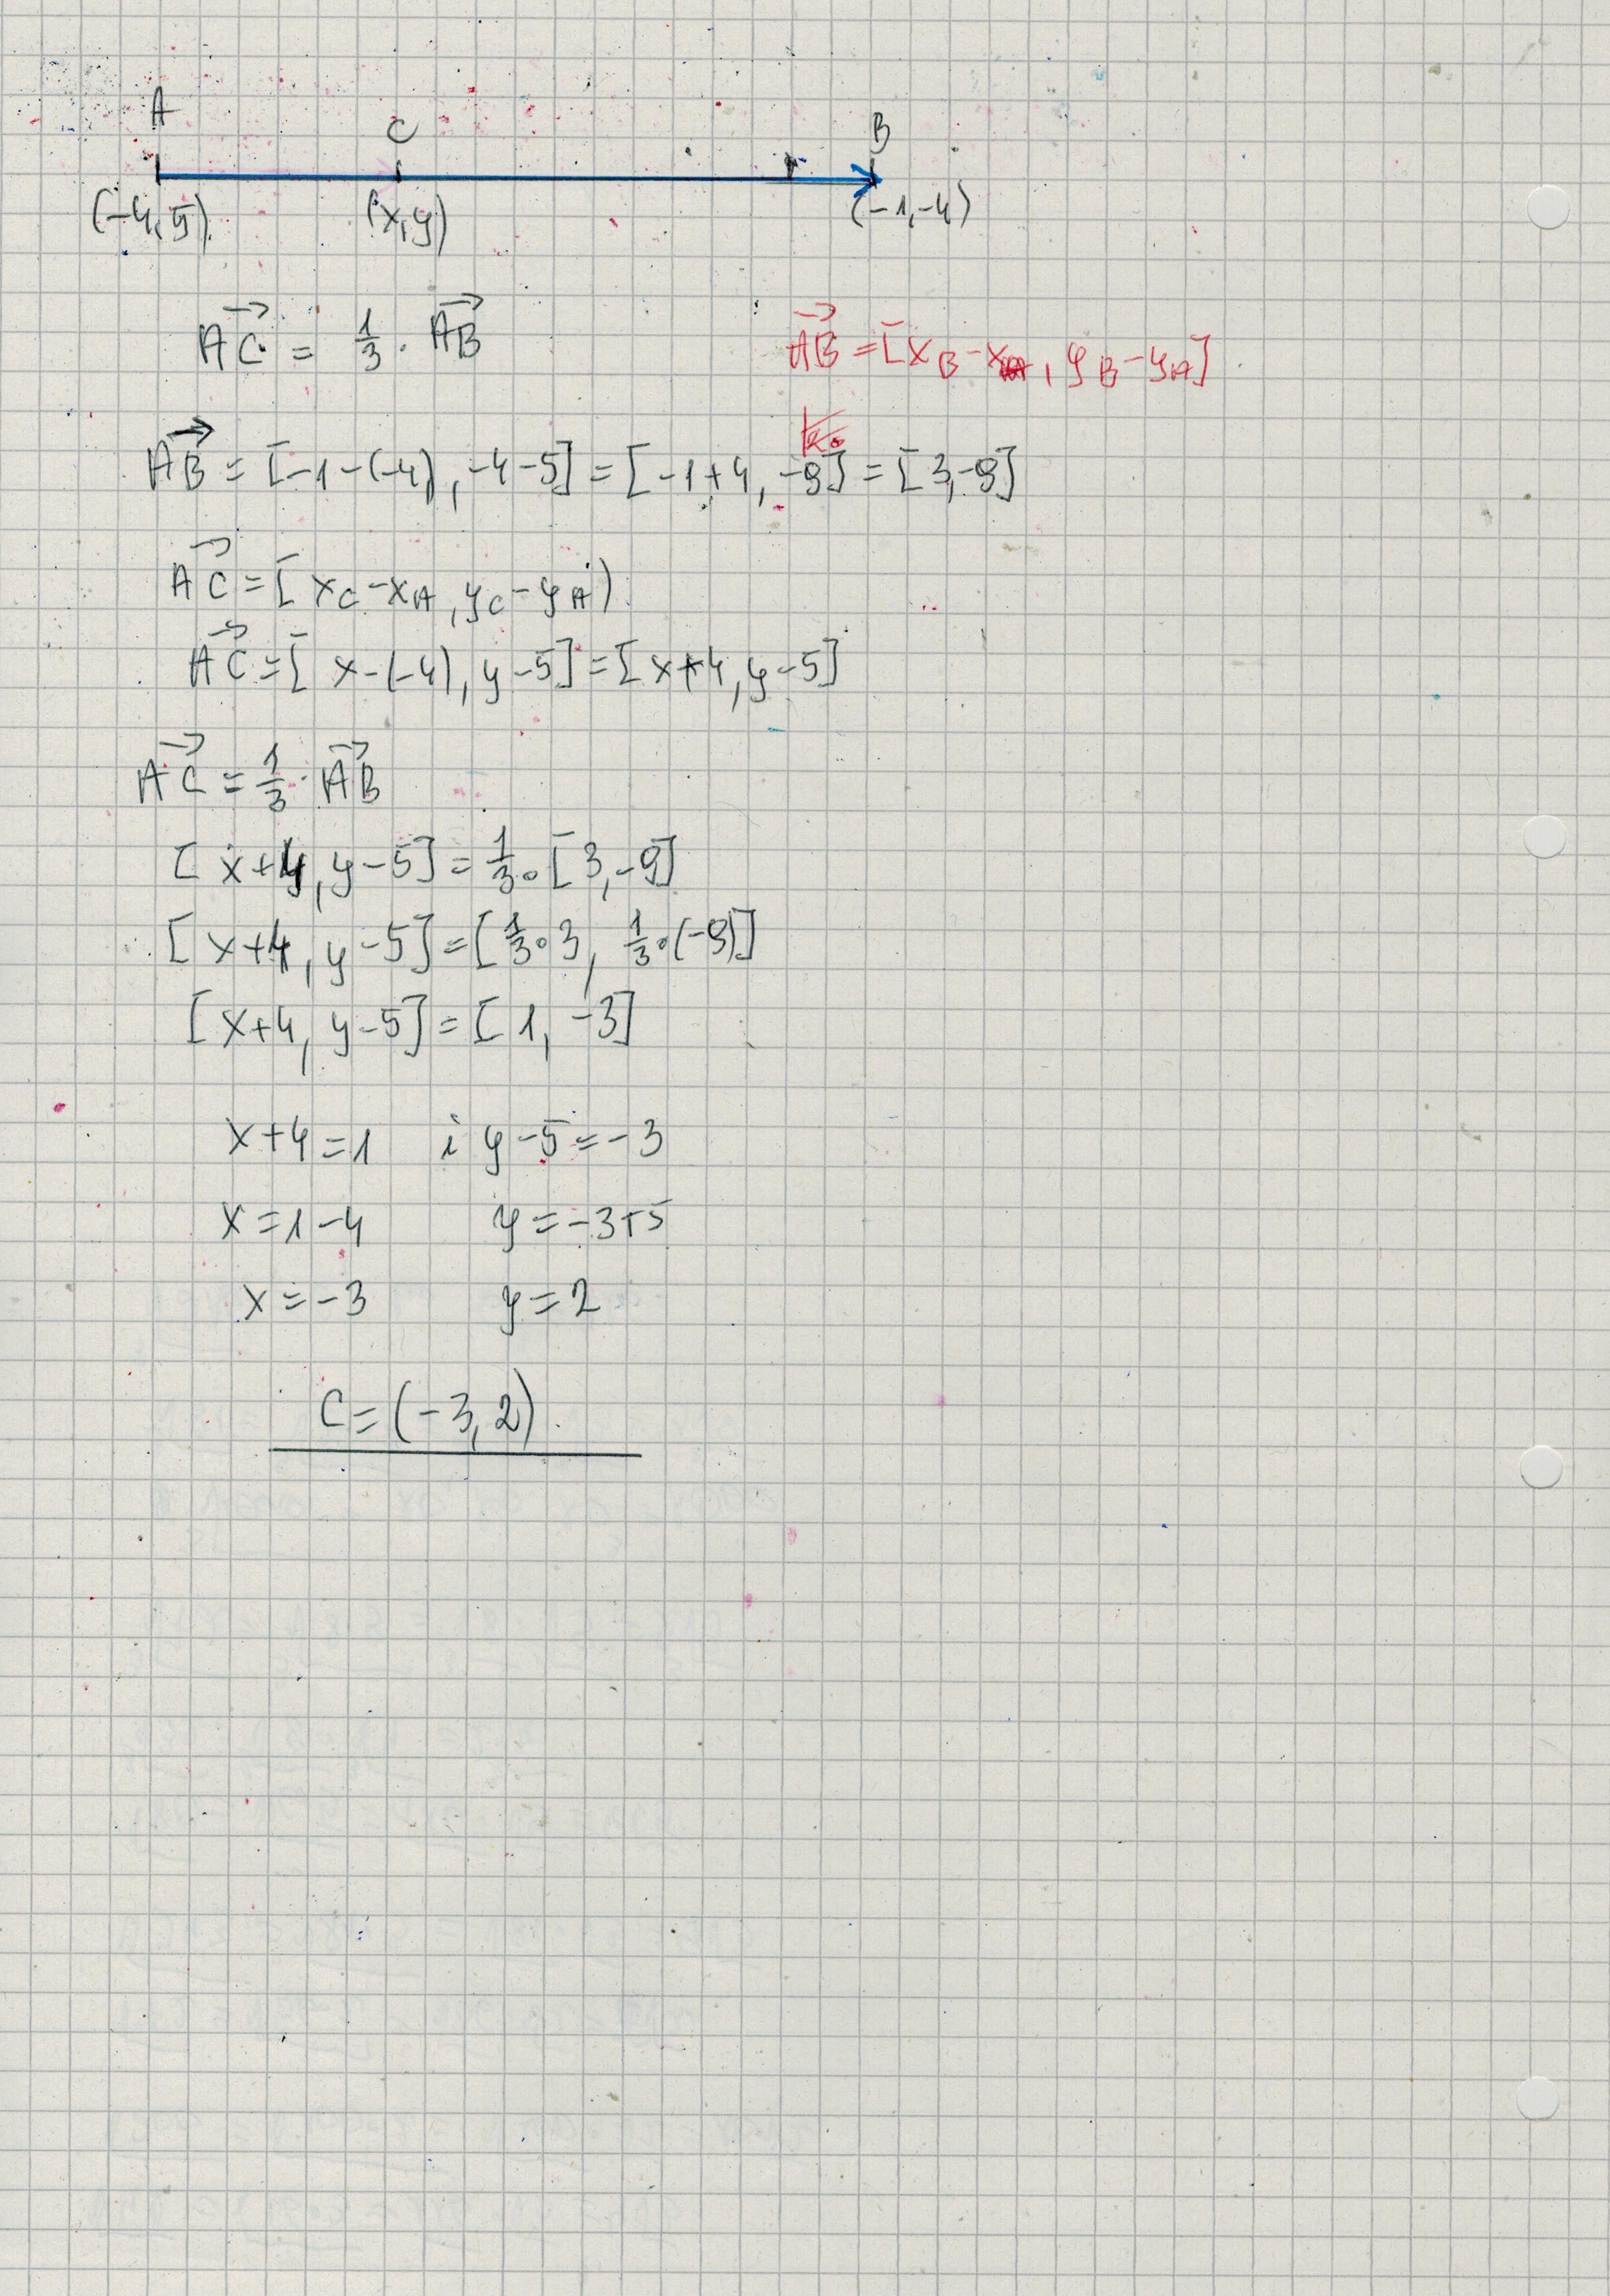 A C B
(-4,5) (x,y) (-1,-4)
AC→ = 1/3 · AB→
AB→ = [xB-xA, yB-yA]
AB→ = [-1-(-4), -4-5] = [-1+4, -9] = [3,-9]
AC→ = [xC-xA, yC-yA)
AC→ = [x-(-4), y-5] = [x+4, y-5]
AC→ = 1/3 · AB→
[x+4, y-5] = 1/3 · [3,-9]
[x+4, y-5] = [1/3 · 3, 1/3 · (-9)]
[x+4, y-5] = [1, -3]
x+4=1 i y-5=-3
x=1-4 y=-3+5
x=-3 y=2
C=(-3,2).